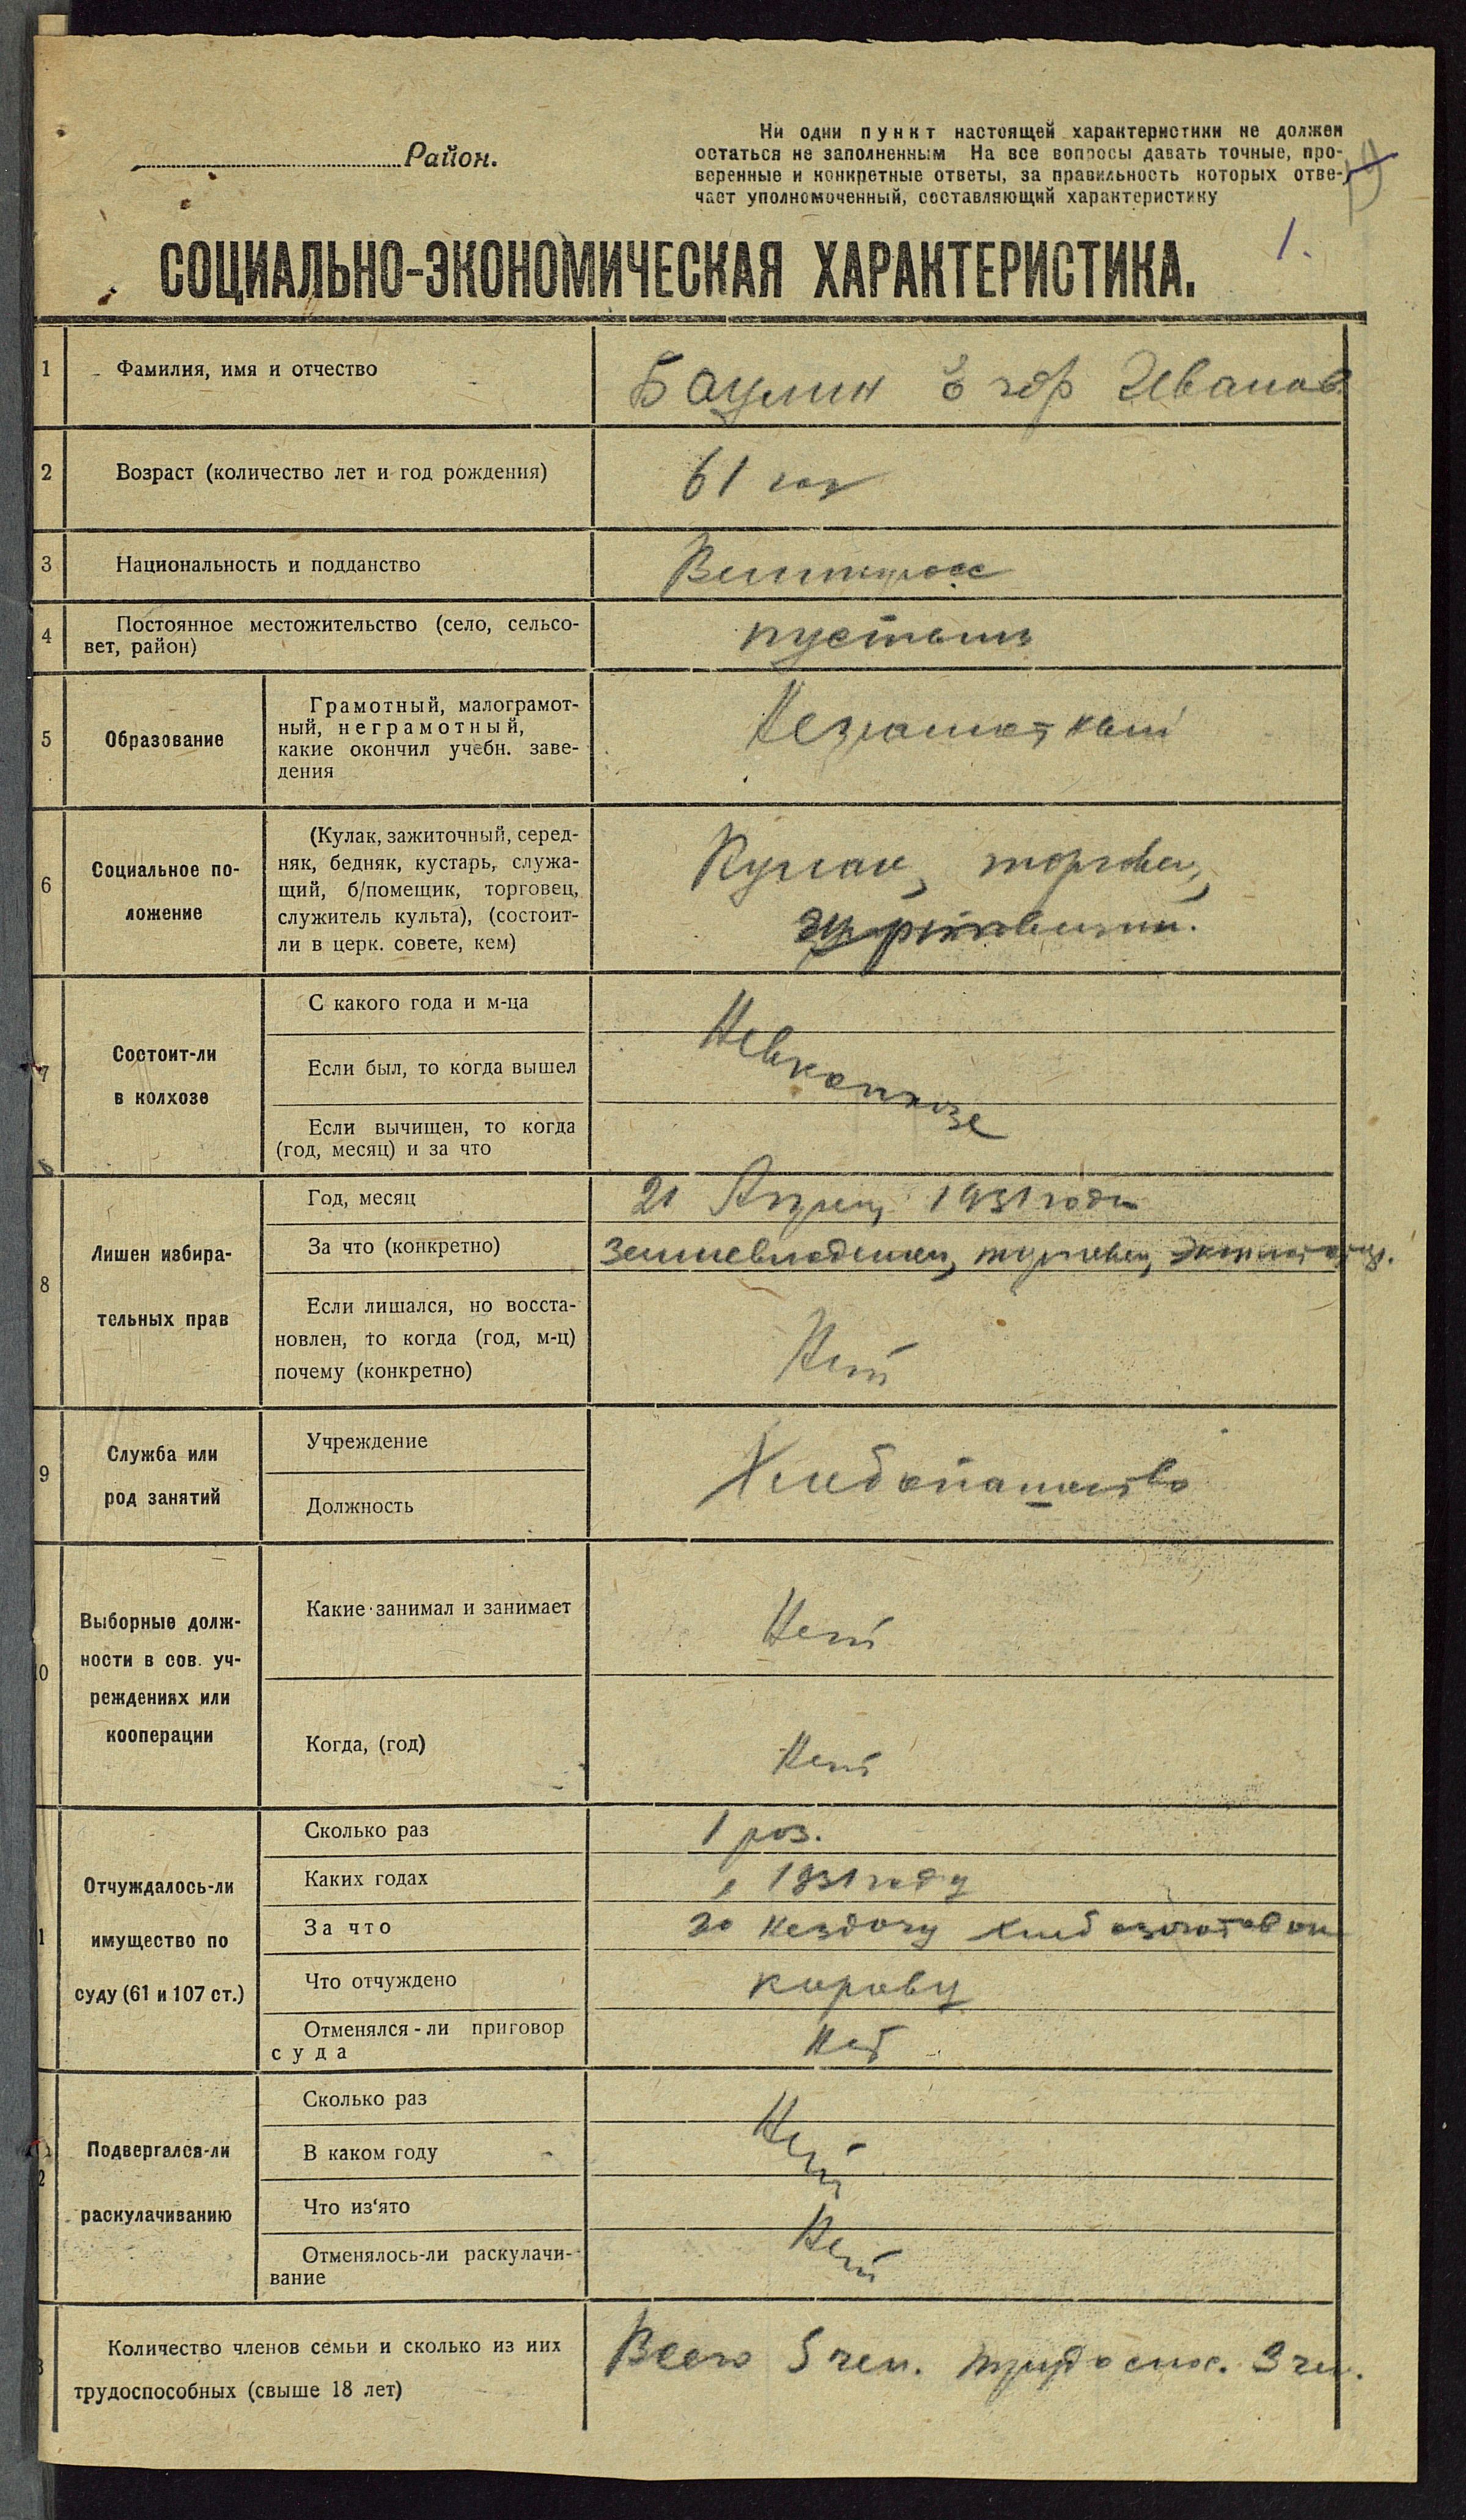 Ни один пункт настоящей характеристики не должен
остаться не заполненным На все вопросы давать точные, про-
веренные и конкретные ответы, за правильность которых отве-
чает уполномоченный, составляющий характеристику
Район.
1.
СОЦИАЛЬНО-ЭКОНОМИЧЕСКАЯ ХАРАКТЕРИСТИКА.
1 Фамилия, имя и отчество Баулин Егор Иванов
2 Возраст (количество лет и год рождения) 61 год
3 Национальность и подданство Великоросс
4 Постоянное местожительство (село, сельсо-
вет, район)
пустынь
5 Образование
Грамотный, малограмот-
ный, неграмотный,
какие окончил учебн. заве-
дения
Неграмотный
6 Социальное по-
ложение
(Кулак, зажиточный, серед-
няк, бедняк, кустарь, служа-
щий, б/помещик, торговец,
служитель культа), (состоит-
ли в церк. совете, кем)
Кулак, торговец,
7 Состоит-ли
в колхозе
С какого года и м-ца
Если был, то когда вышел
Если вычищен, то когда
(год, месяц) и за что
Невколхозе
8 Лишен избира-
тельных прав
Год, месяц 21 Апреля 1931 года
За что (конкретно) Землевладелец, торговец, эксплотатор.
Если лишался, но восста-
новлен, то когда (год, м-ц)
почему (конкретно)
Нет
9 Служба или
род занятий
Учреждение
Должность
Хлебопашество
0 Выборные долж-
ности в сов. уч-
реждениях или
кооперации
Какие занимал и занимает Нет
Когда, (год) Нет
1 Отчуждалось-ли
имущество по
суду (61 и 107 ст.)
Сколько раз 1 роз.
Каких годах 1931 году
За что за нездачу хлебозаготовок
Что отчуждено корову
Отменялся-ли приговор
суда
Нет
2 Подвергался-ли
раскулачиванию
Сколько раз
В каком году
Нет
Что из'ято
Отменялось-ли раскулачи-
вание
Нет
3 Количество членов семьи и сколько из них
трудоспособных (свыше 18 лет)
Всего 5 чел. трудоспос. 3 чел.